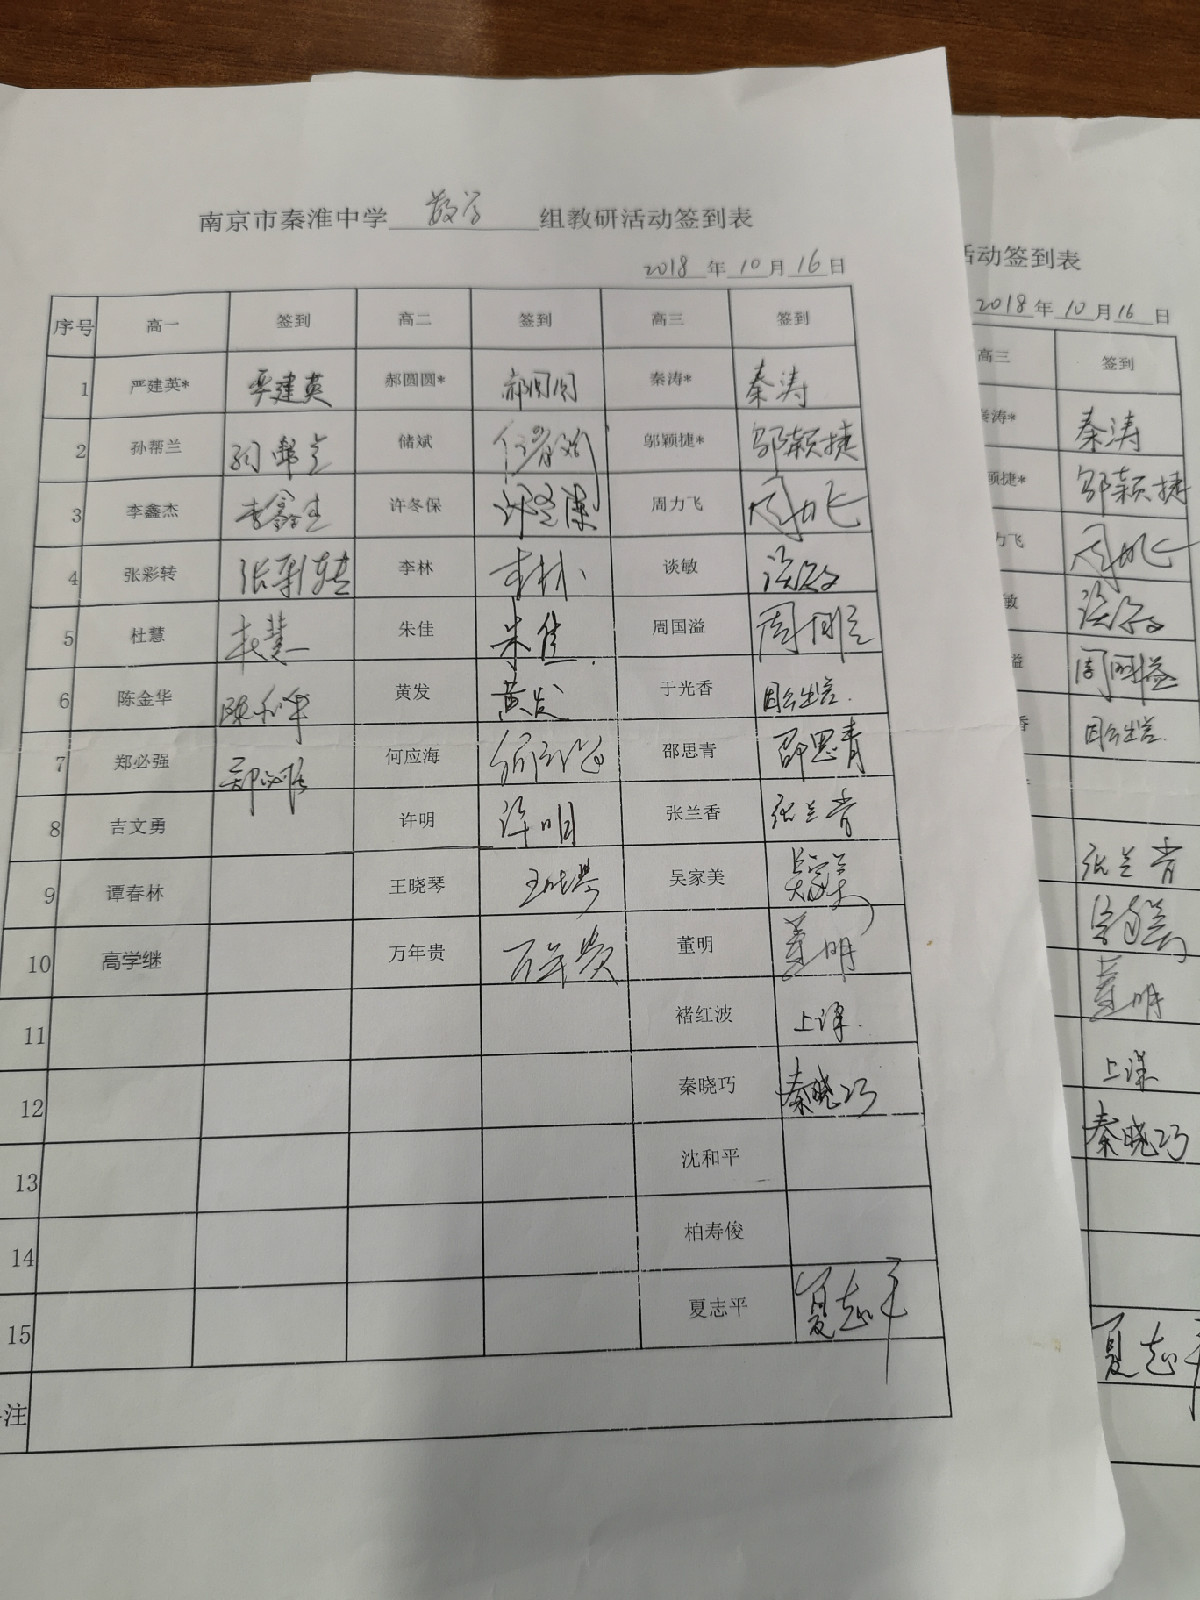 南京市秦淮中学 数学 组教研活动签到表
2018 年 10 月 16 日
序号 高一 签到 高二 签到 高三 签到
1 严建英* 严建英 郝圆圆* 郝圆圆 秦涛* 秦涛
2 孙帮兰 孙帮兰 储斌 储斌 邬颖捷* 邬颖捷
3 李鑫杰 李鑫杰 许冬保 许冬保 周力飞 周力飞
4 张彩转 张彩转 李林 李林 谈敏 谈敏
5 杜慧 杜慧 朱佳 朱佳 周国溢 周国溢
6 陈金华 陈金华 黄发 黄发 于光香
7 郑必强 郑必强 何应海 何应海 邵思青 邵思青
8 吉文勇 许明 许明 张兰香 张兰香
9 谭春林 王晓琴 王晓琴 吴家美 吴家美
10 高学继 万年贵 万年贵 董明 董明
11 褚红波 上课
12 秦晓巧 秦晓巧
13 沈和平
14 柏寿俊
15 夏志平 夏志平
注
活动签到表
2018 年 10 月 16 日
高三 签到
秦涛* 秦涛
颖捷* 邬颖捷
力飞 周力飞
敏 谈敏
溢 周国溢
香
张兰香
吴家美
董明
上课
秦晓巧
夏志平